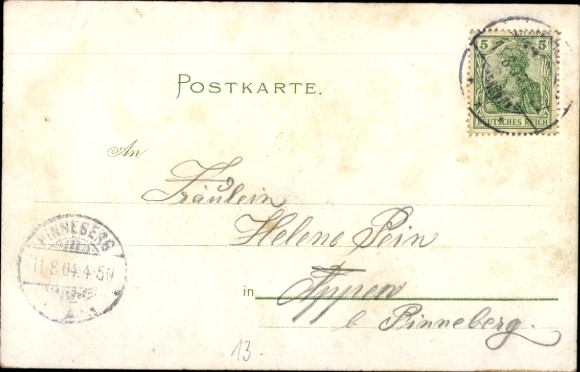 5 5
DEUTSCHES REICH
POSTKARTE.
An
Fräulein
Helene Pein
PINNEBERG
11.8.04.4-5N
in Appen
b Pinneberg.
13.